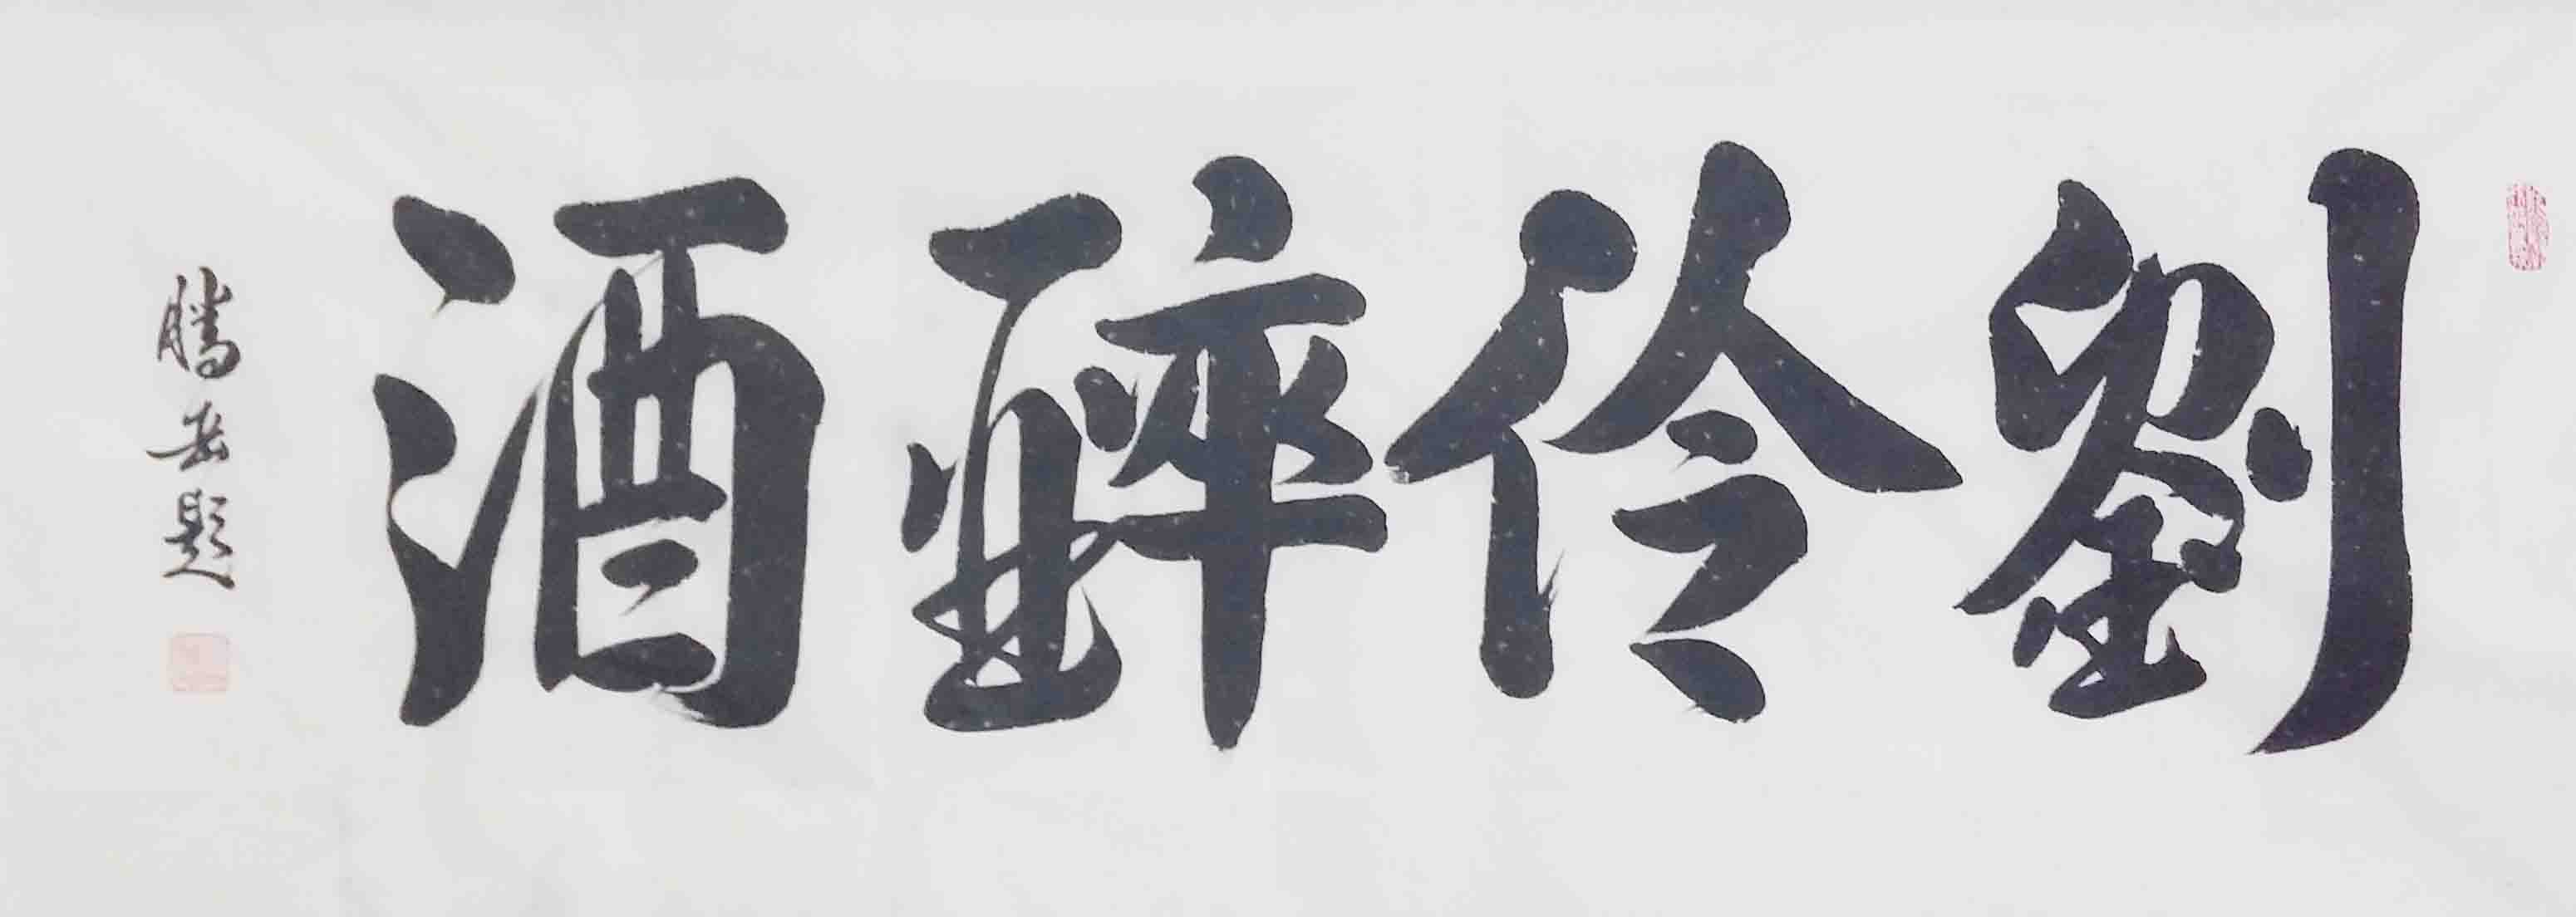 劉伶醉酒
騰岳題